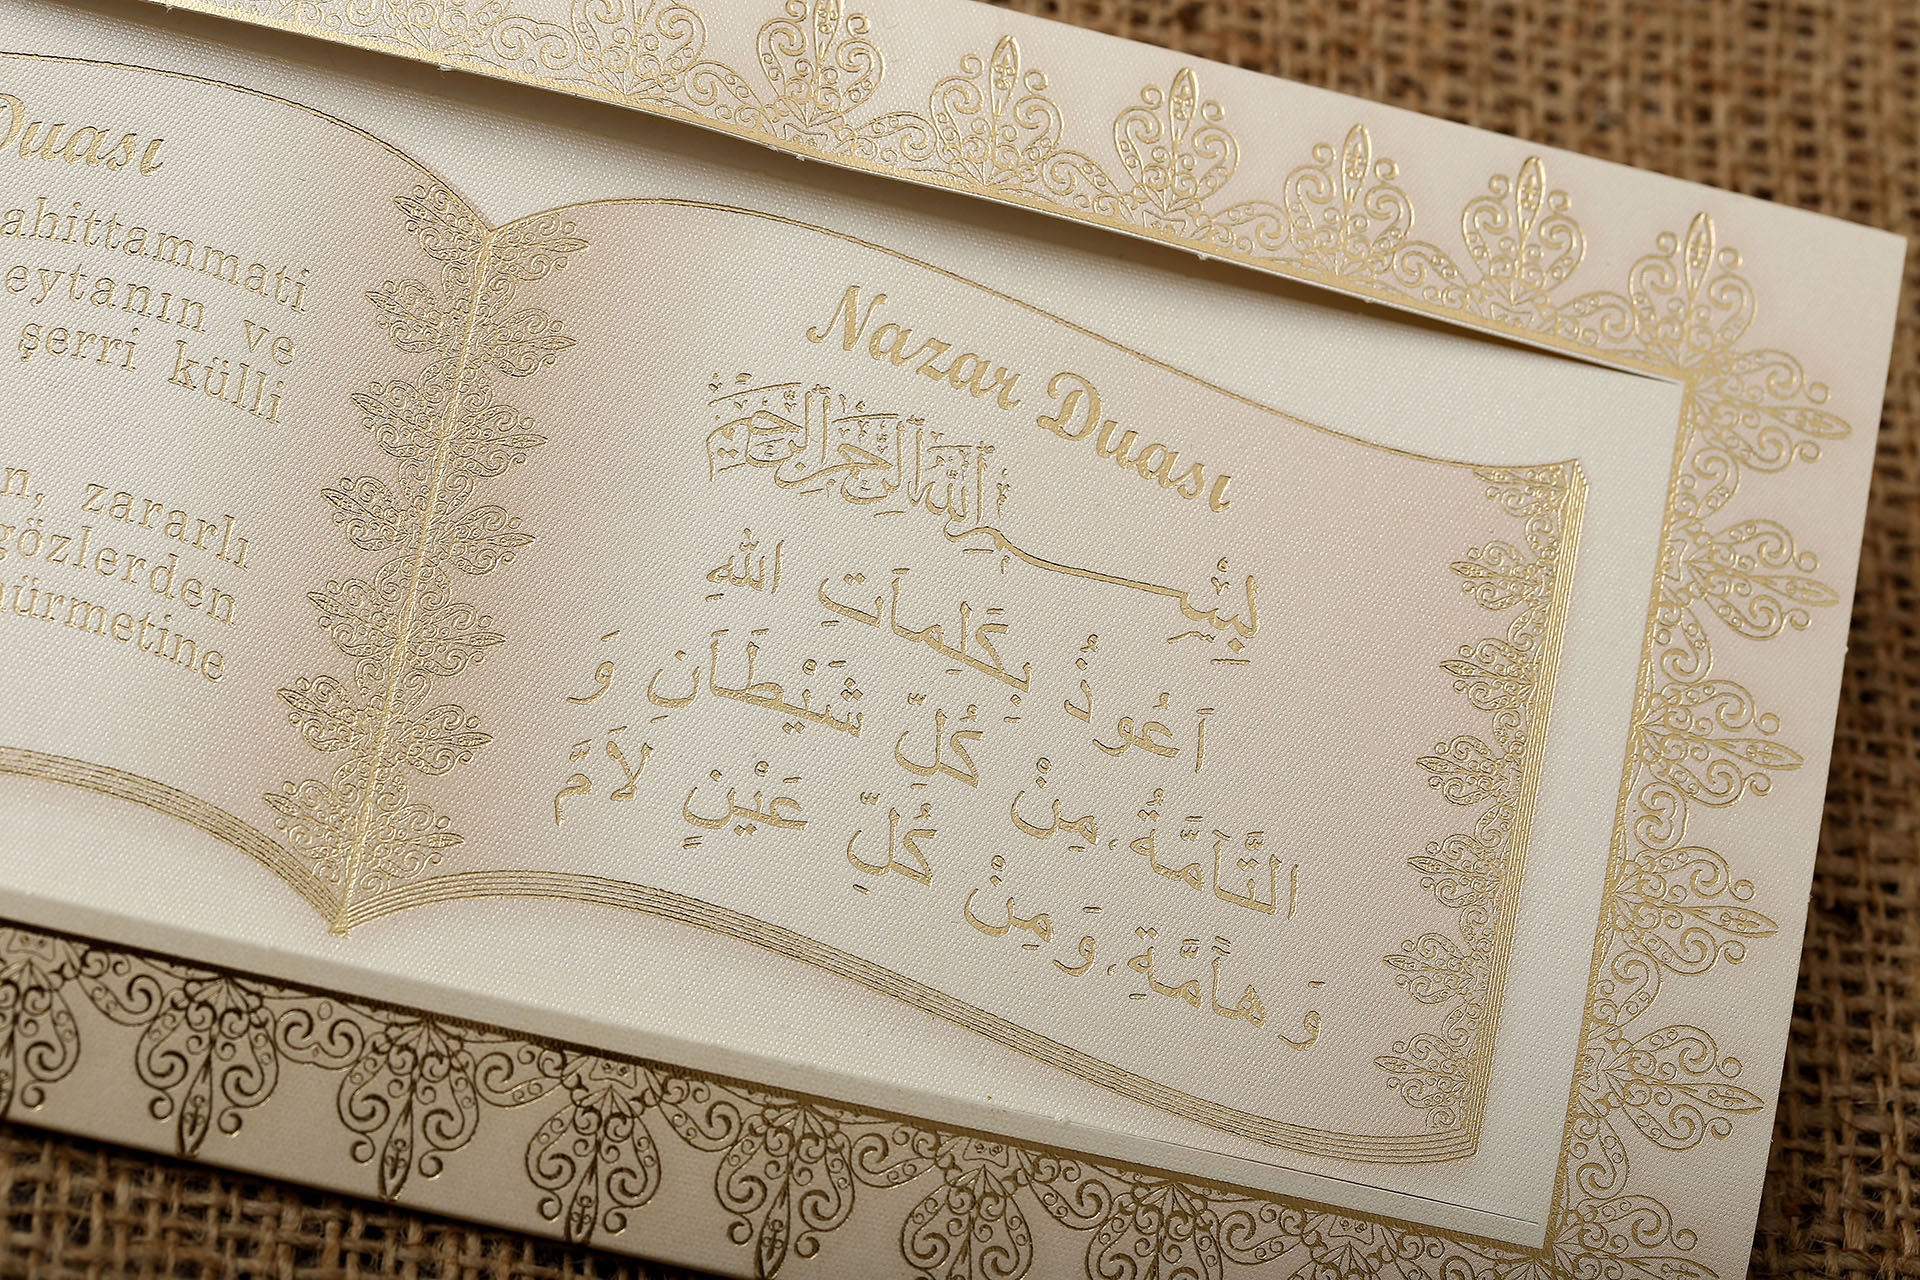 Duası
ahittammati
eytanın ve
şerri külli
n, zararlı
gözlerden
hürmetine
Nazar Duası
بِسْمِ اللهِ الرَّحْمٰنِ الرَّحِيمِ
اَعُوذُ بِكَلِمَاتِ اللهِ
التَّآمَّةُ، مِنْ كُلِّ شَيْطَآنِ وَ
وَ هاَمَّةِ، وَمِنْ كُلِّ عَيْنٍ لاَمَّ